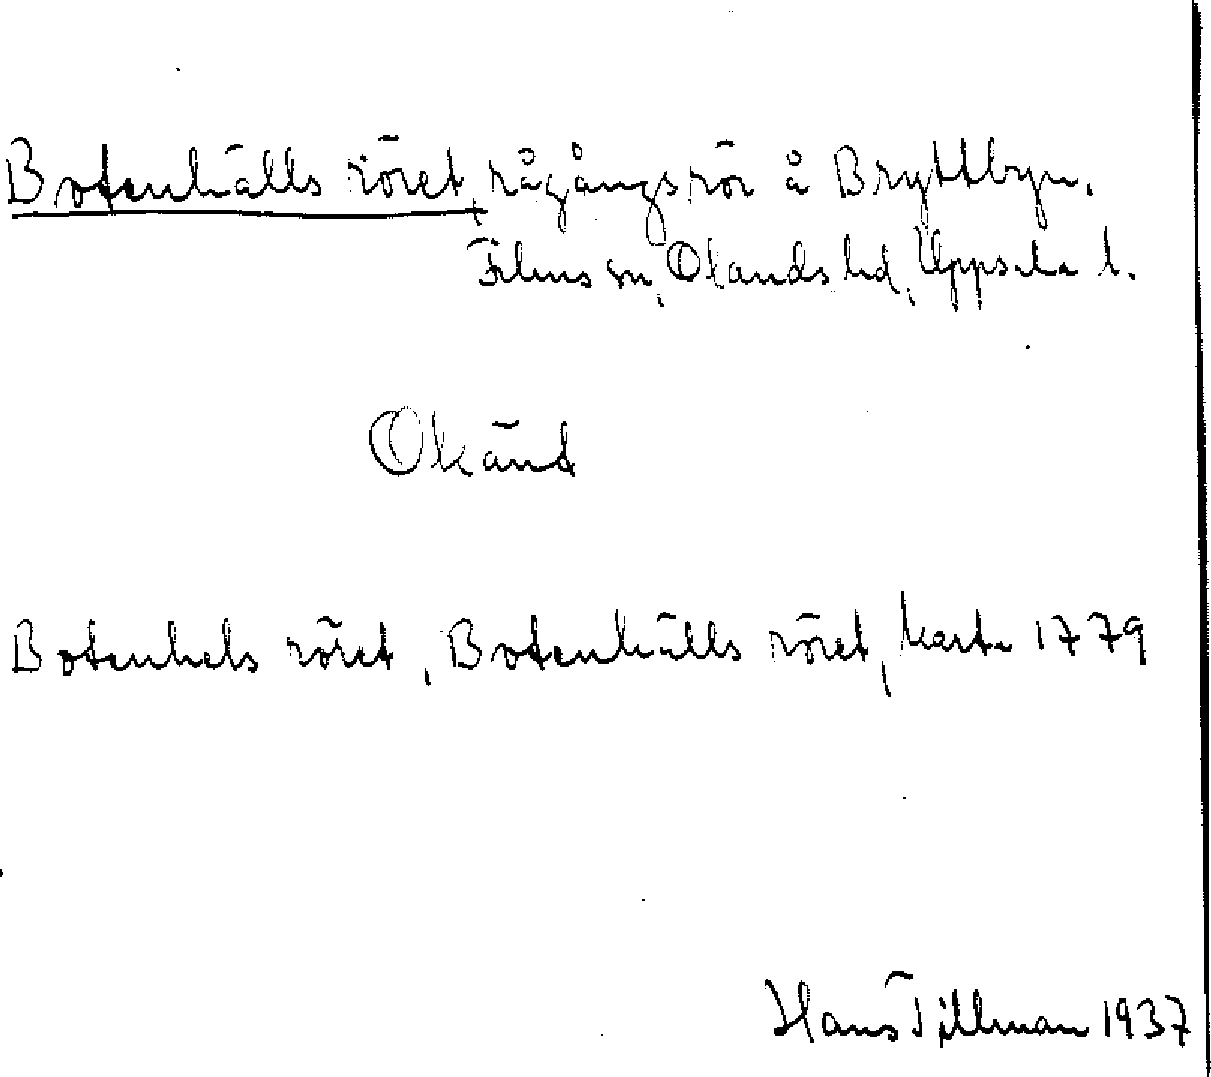 Botenhälls röret, rågångsrör å Bryttbyn.
Films sn, Olands hd, Uppsala l.
Okänd
Botenhels röret, Botenhälls röret, karta 1779
Hans Tillman 1937